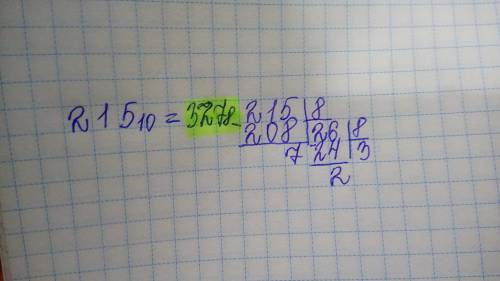 215₁₀ = 327₈ 215 | 8
208 | 26 | 8
7 24 | 3
2